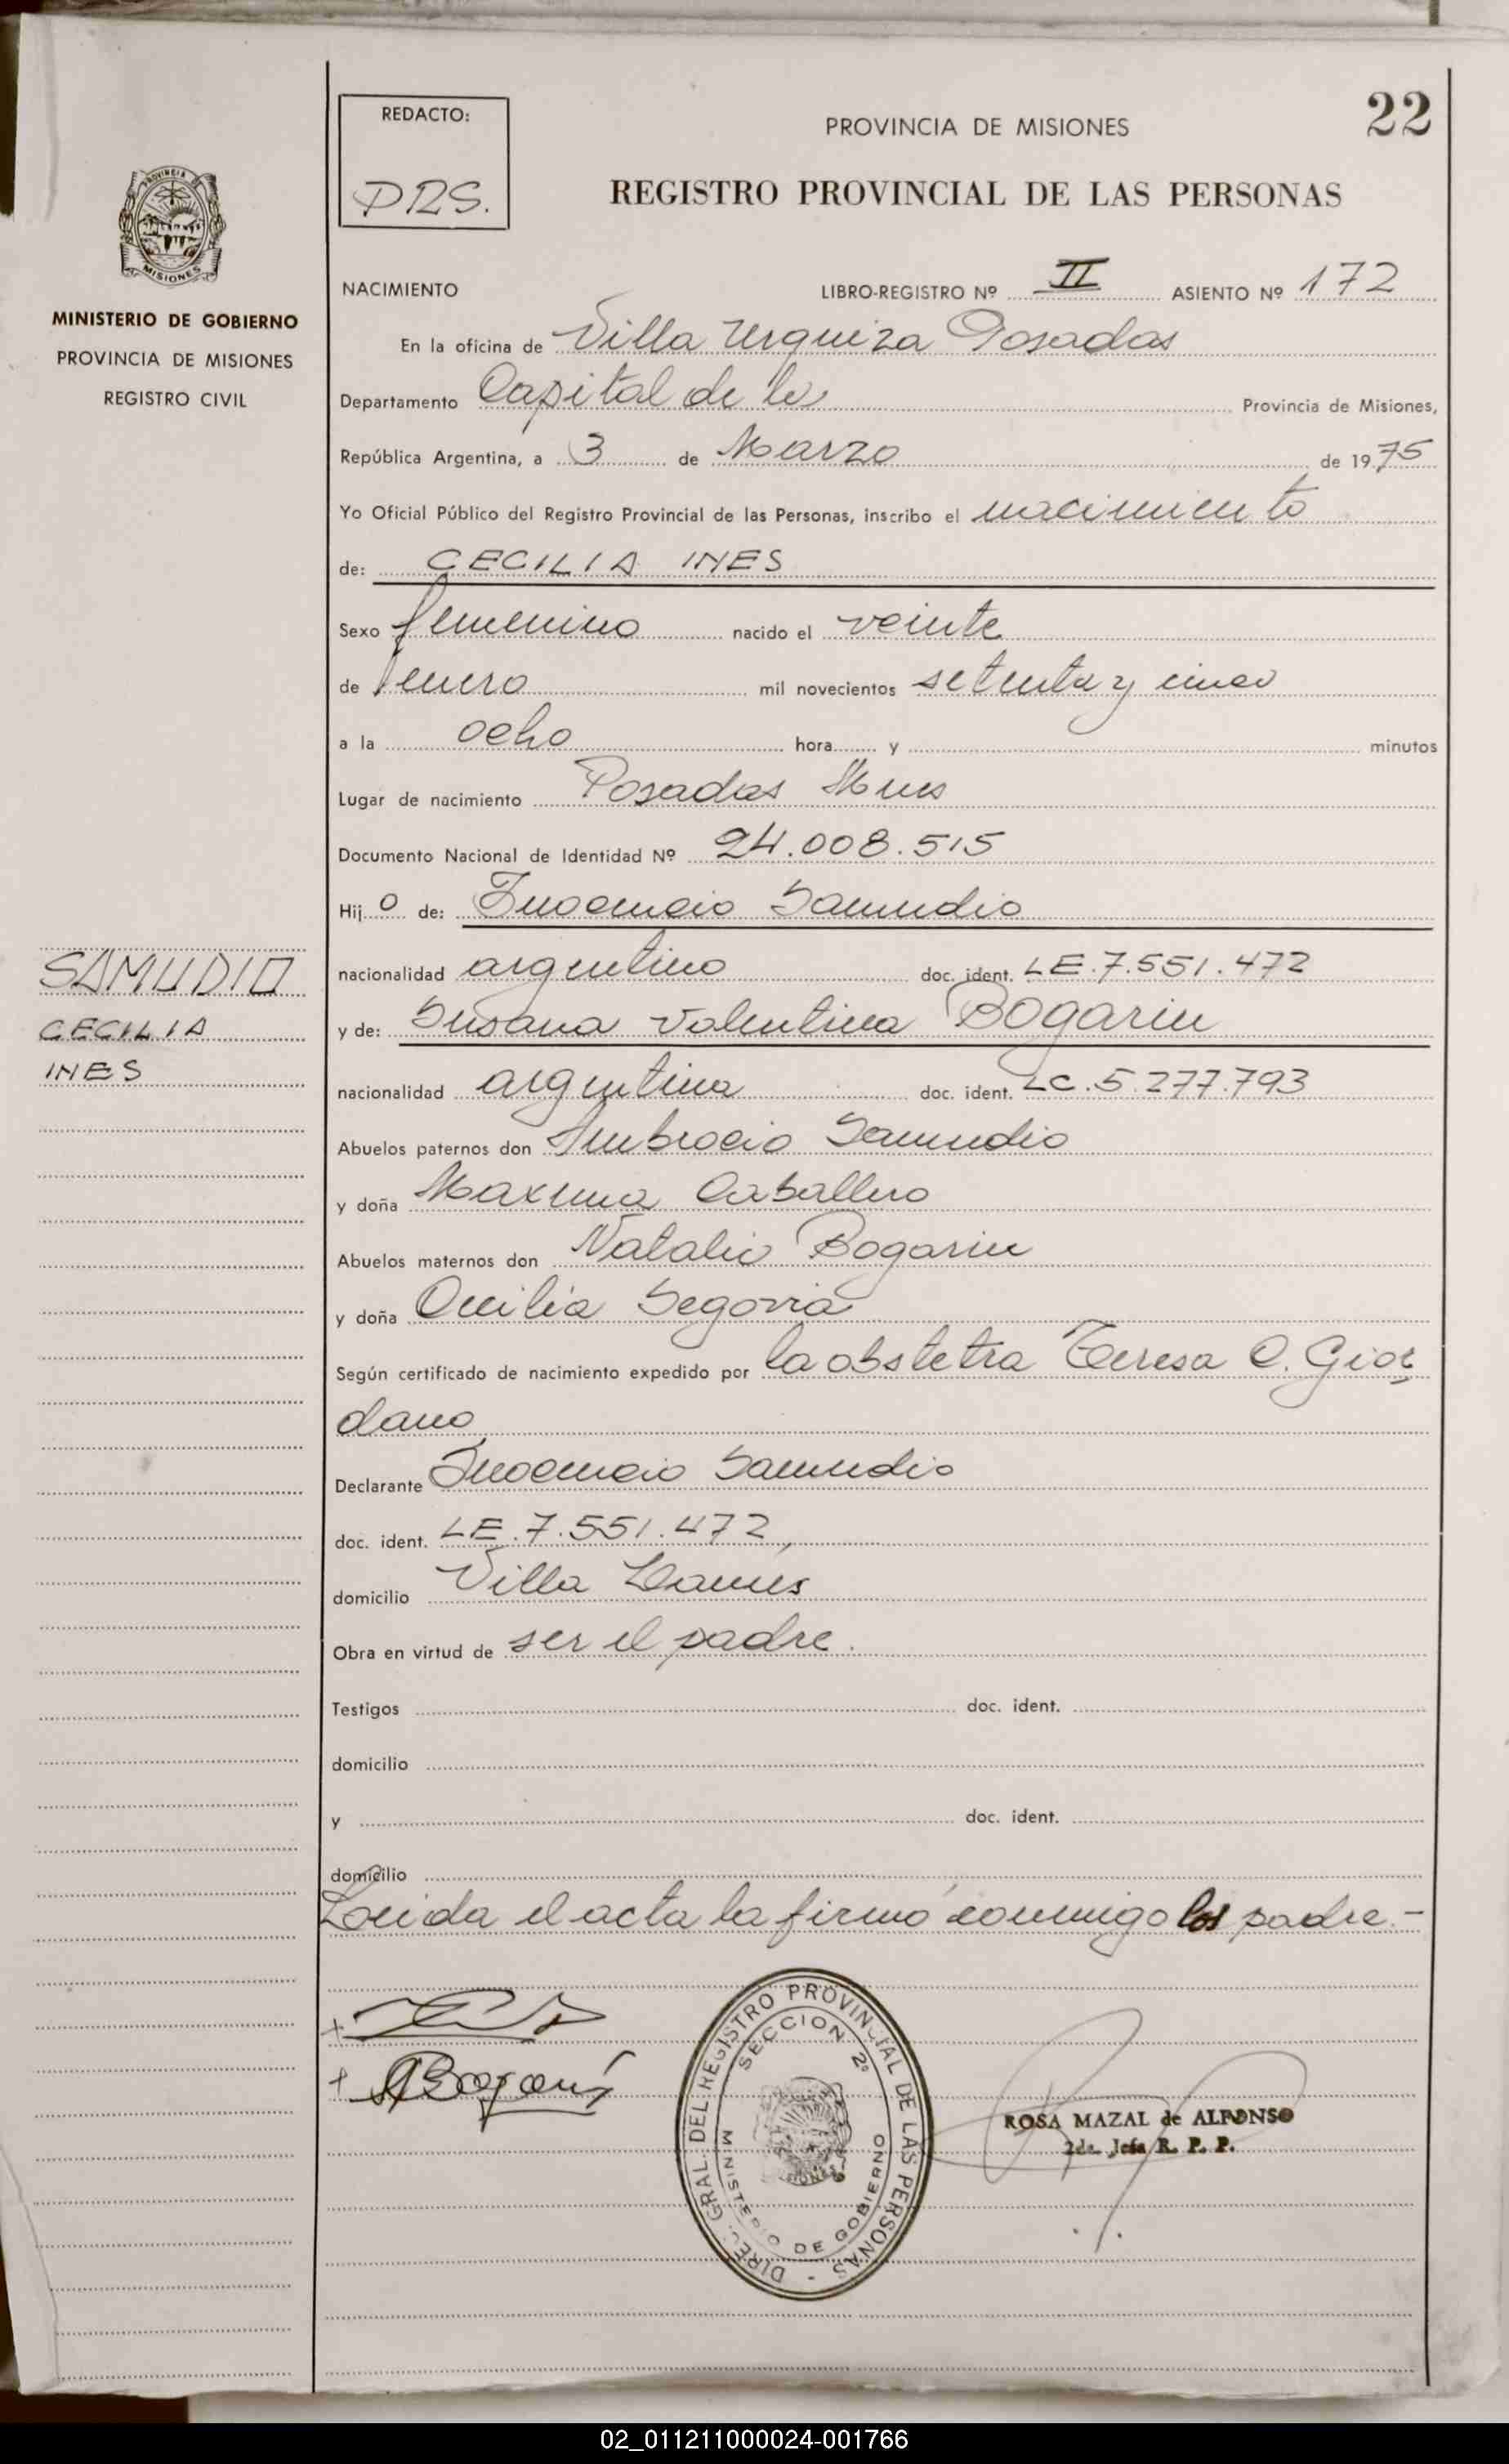 22
REDACTO:
DRS.
PROVINCIA DE MISIONES
REGISTRO PROVINCIAL DE LAS PERSONAS
PROVINCIA
MISIONES
MINISTERIO DE GOBIERNO
PROVINCIA DE MISIONES
REGISTRO CIVIL
NACIMIENTO LIBRO-REGISTRO Nº II ASIENTO Nº 172
En la oficina de Villa Urquiza Posadas
Departamento Capital de la Provincia de Misiones,
República Argentina, a 3 de Marzo de 1975
Yo Oficial Público del Registro Provincial de las Personas, inscribo el nacimiento
de: CECILIA INES
Sexo femenino nacido el veinte
de enero mil novecientos setenta y cinco
a la ocho hora y minutos
Lugar de nacimiento Posadas Mnes
Documento Nacional de Identidad Nº 24.008.515
Hijo de: Inocencio Samudio
nacionalidad argentino doc. ident. LE.7.551.472
y de: Susana Valentina Bogarin
nacionalidad argentina doc. ident. LC.5.277.793
Abuelos paternos don Ambrocio Samudio
y doña Maxima Caballero
Abuelos maternos don Natalio Bogarin
y doña Segovia
Según certificado de nacimiento expedido por la obstetra Teresa C. Gior
dano
Declarante Inocencio Samudio
doc. ident. LE.7.551.472,
domicilio Villa Lanus
Obra en virtud de ser el padre.
Testigos doc. ident.
domicilio
y doc. ident.
domicilio
Leida el acta la firmó conmigo los padre.-
SAMUDIO
CECILIA
INES
Bogarin
DIREC. GRAL. DEL REGISTRO PROVINCIAL DE LAS PERSONAS -
SECCION 2ª
MINISTERIO DE GOBIERNO
ROSA MAZAL de ALFONSO
2da. Jefa R. P. P.
02_011211000024-001766